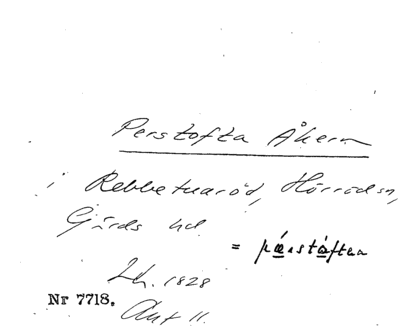 Perstofta Åkern
i Rebbetuaröd, Hörrödsn,
Gärds hd.
= pǽrståftan
Lh. 1828
Nr 7718. Ant 11.